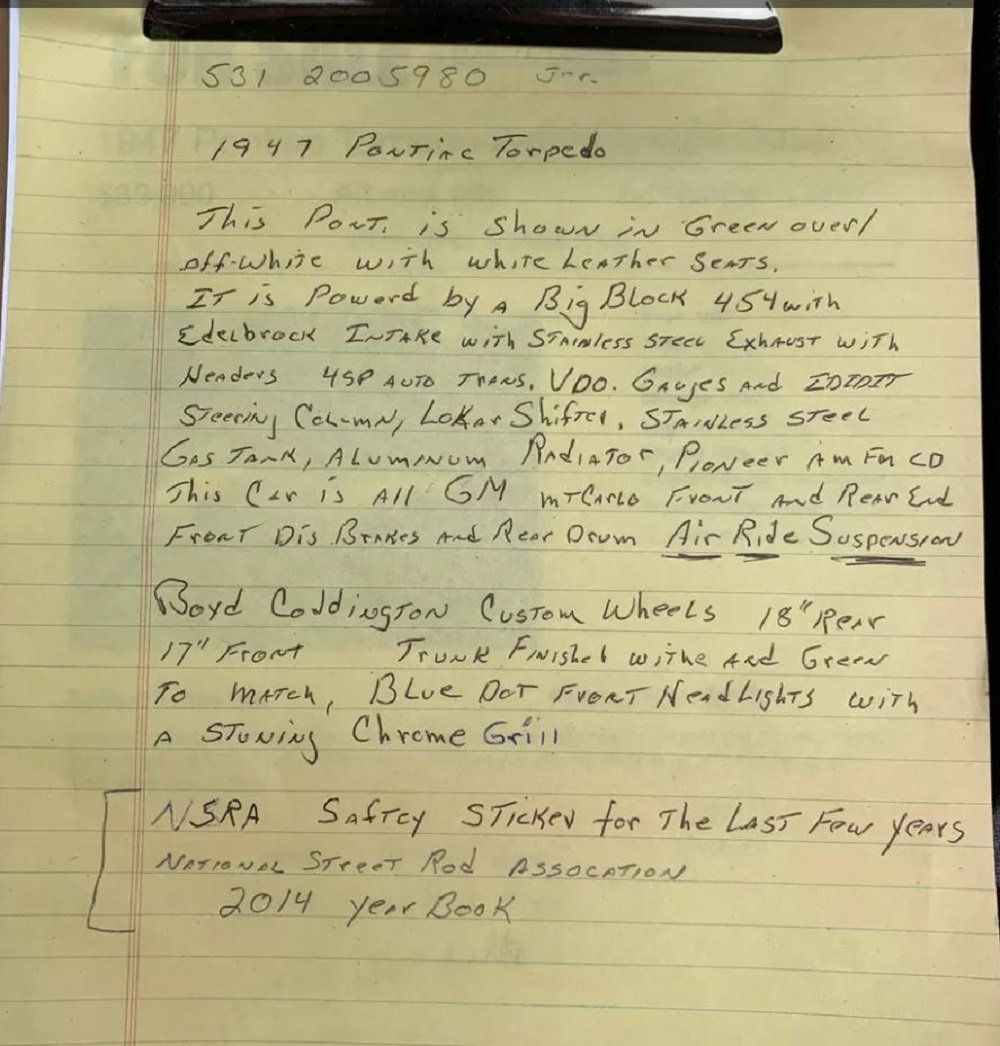 531 2005980 Jr.
1947 Pontiac Torpedo
This Pont. is Shown in Green over/
off-white with white Leather Seats.
It is Powerd by a Big Block 454 with
Edelbrock Intake with Stainless Steel Exhaust with
Headers 4SP Auto Trans. VDO. Gauges and IDIDIT
Steering Column, Lokar Shifter, Stainless Steel
Gas Tank, Aluminum Radiator, Pioneer Am Fm CD
This Car is All GM MTCarlo Front and Rear End
Front Dis Brakes and Rear Drum Air Ride Suspension
Boyd Coddington Custom Wheels 18" Rear
17" Front Trunk Finished withe and Green
To match, Blue Dot Front Head Lights with
a Stuning Chrome Grill
NSRA Saftey Sticker for The Last Few years
National Street Rod Assocation
2014 year Book